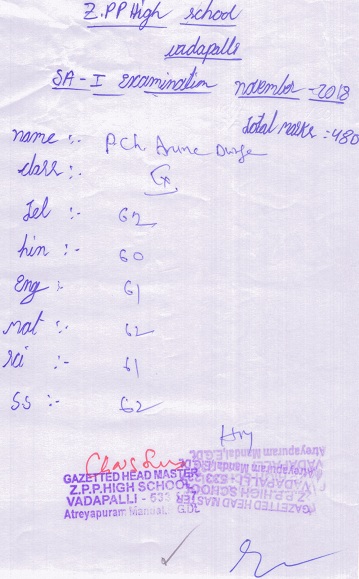 Z.PP High school
vadapalli
SA - I Examination november - 2018
Total marks :480
name :- P Ch Arune Durga
class :-
Tel :- 62
hin :- 60
Eng :- 61
mat :- 62
sci :- 61
SS :- 62
GAZETTED HEAD MASTER
Z.P.P.HIGH SCHOOL
VADAPALLI - 533
Atreyapuram Mandal, E.G.Dt.
GAZETTED HEAD MASTER
Z.P.P.HIGH SCHOOL
VADAPALLI - 533
Atreyapuram Mandal, E.G.Dt.